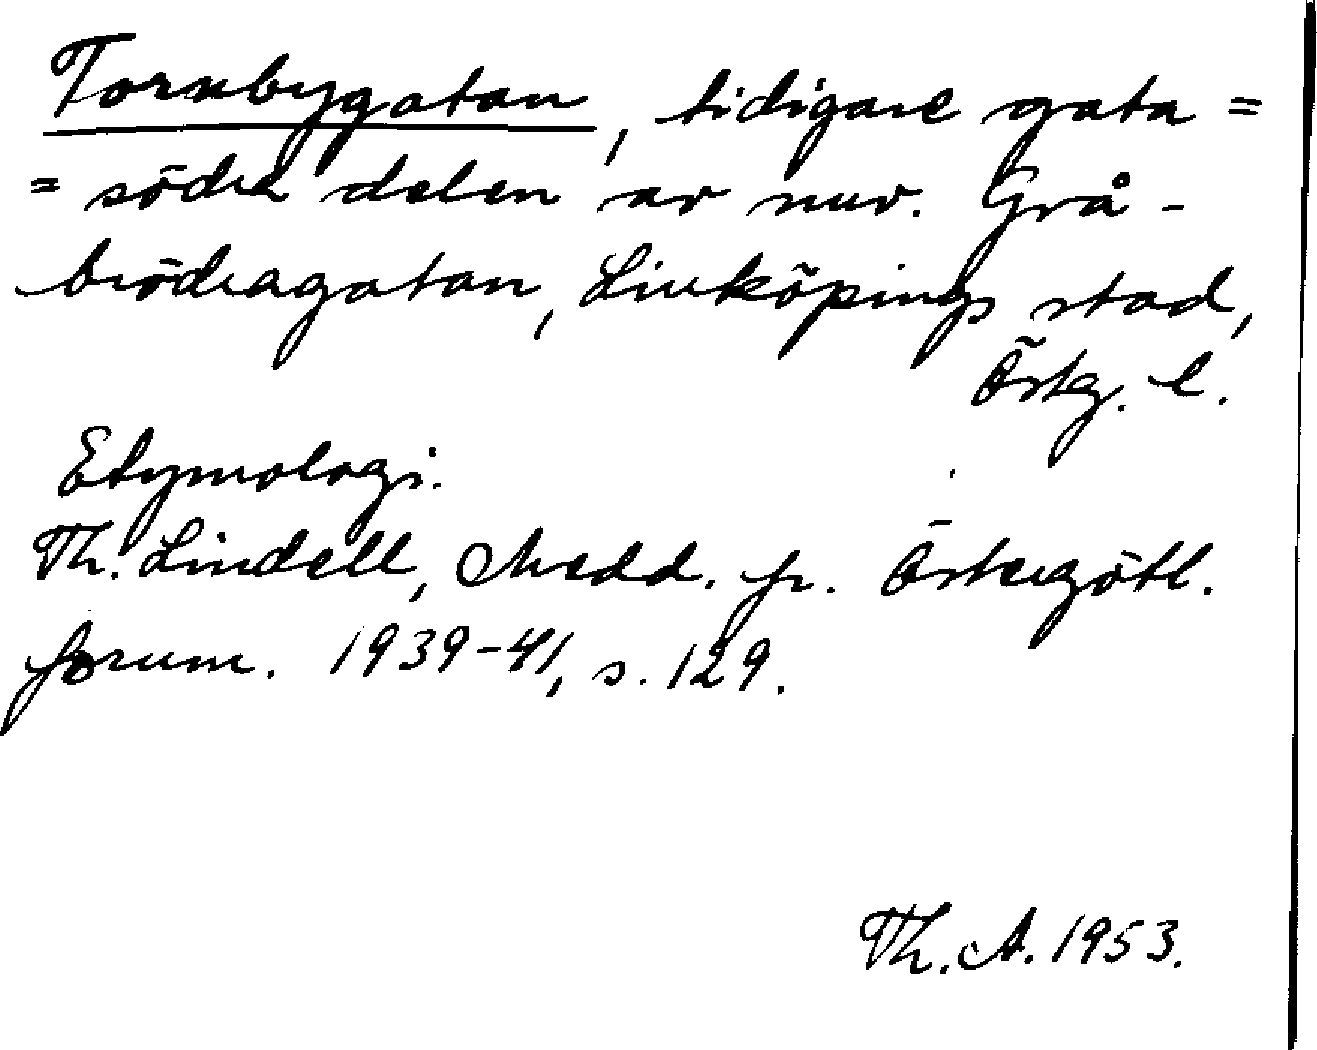 Tornbygatan, tidigare gata =
= södra delen av nuv. Grå-
brödragatan, Linköpings stad,
Östg. l.
Etymologi.
Th. Lindell, Medd. fr. Östergötl.
fornm. 1939-41, s. 129.
Th. A. 1953.